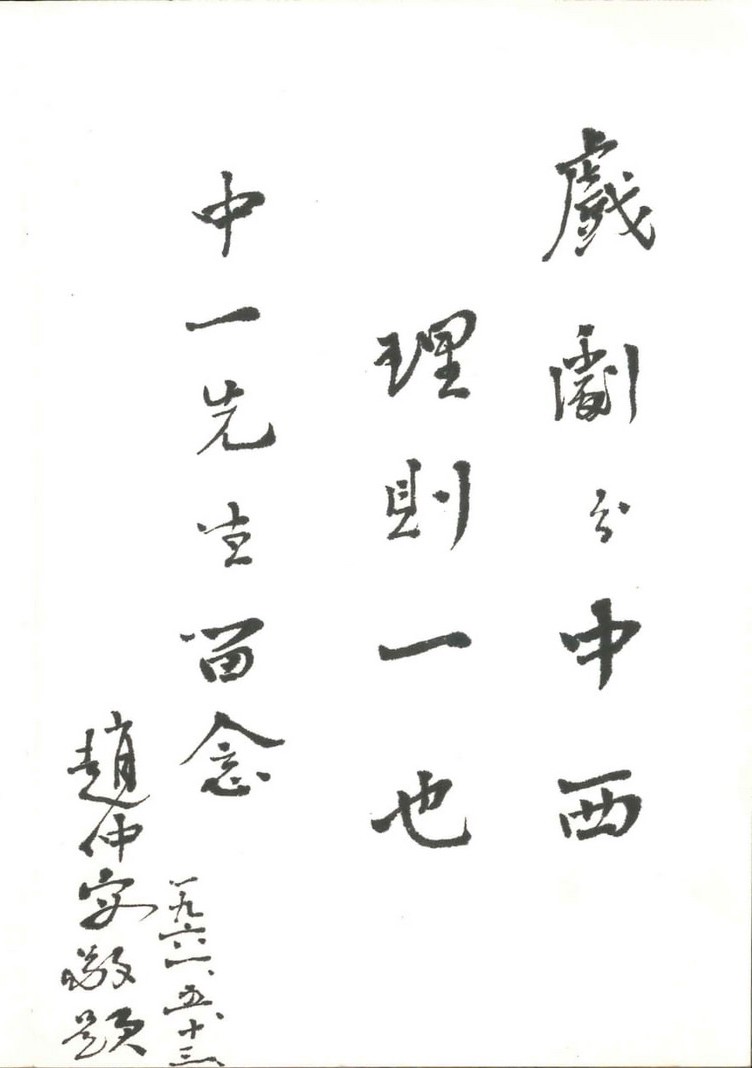 戲劇分中西
理則一也
中一先生留念
一九六一、五、十三、
趙仲安敬題